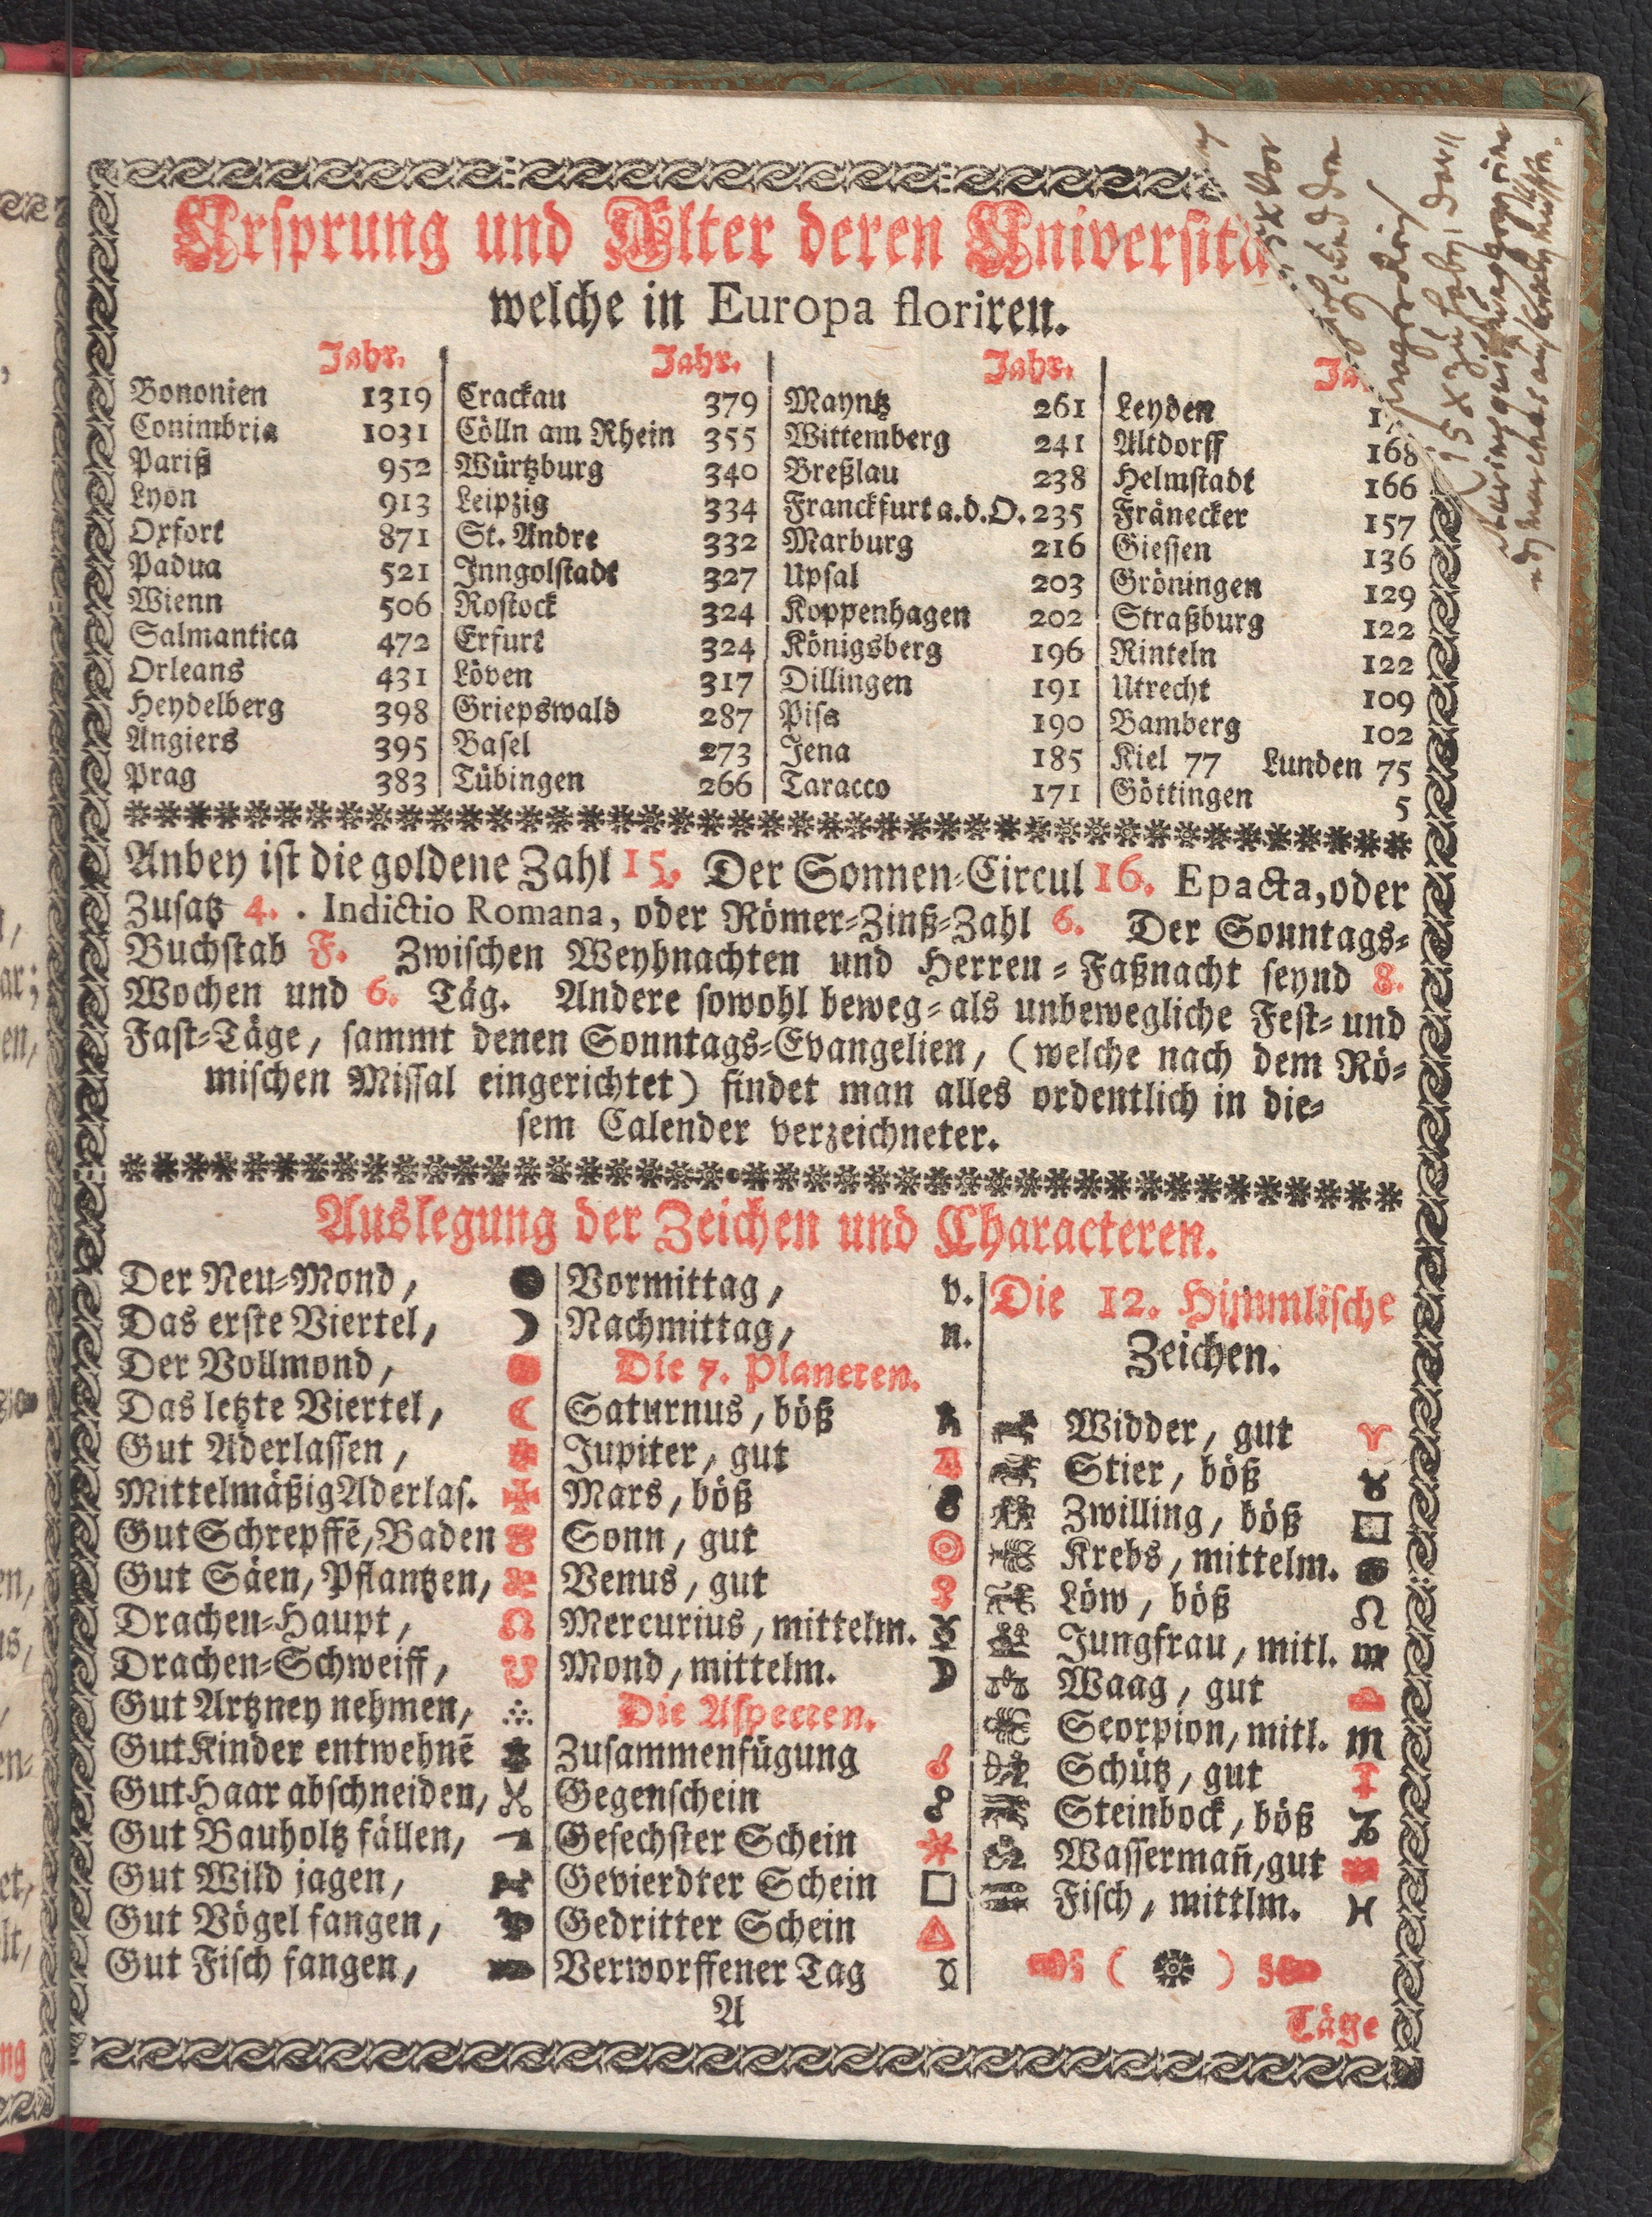 Ursprung und Alter deren
welche in Europa floriren.
Jahr. Jahr. Jahr.
Bononien 1319 Crackau 379 Mayntz 261 Leyden
Conimbria 1031 Cölln am Rhein 355 Wittemberg 241 Altdorff 168
Pariß 952 Würtzburg 340 Breßlau 238 Helmstadt 166
Lyon 913 Leipzig 334 Franckfurt a.d.O. 235 Fränecker 157
Oxfort 871 St. Andre 332 Marburg 216 Giessen 136
Padua 521 Inngolstadt 327 Upsal 203 Gröningen 129
Wienn 506 Rostock 324 Koppenhagen 202 Straßburg 122
Salmantica 472 Erfurt 324 Königsberg 196 Rinteln 122
Orleans 431 Löven 317 Dillingen 191 Utrecht 109
Heydelberg 398 Griepswald 287 Pisa 190 Bamberg 102
Angiers 395 Basel 273 Jena 185 Kiel 77 Lunden 75
Prag 383 Tübingen 266 Taracco 171 Göttingen 5
Anbey ist die goldene Zahl 15. Der Sonnen-Circul 16. Epacta, oder
Zusatz 4. . Indictio Romana, oder Römer-Zinß-Zahl 6. Der Sonntags-
Buchstab F. Zwischen Weyhnachten und Herren-Faßnacht seynd 8.
Wochen und 6. Täg. Andere sowohl beweg- als unbewegliche Fest- und
Fast-Täge, sammt denen Sonntags-Evangelien, (welche nach dem Rö-
mischen Missal eingerichtet) findet man alles ordentlich in die-
sem Calender verzeichneter.
Auslegung der Zeichen und Characteren.
Der Neu-Mond, ●
Das erste Viertel, ☽
Der Vollmond,
Das letzte Viertel, ☾
Gut Aderlassen,
Mittelmäßig Aderlas. ✠
Gut Schrepffē, Baden
Gut Säen, Pflantzen,
Drachen-Haupt, ☊
Drachen-Schweiff, ☋
Gut Artzney nehmen,
Gut Kinder entwehnē
Gut Haar abschneiden,
Gut Bauholtz fällen,
Gut Wild jagen,
Gut Vögel fangen,
Gut Fisch fangen,
Vormittag, v.
Nachmittag, n.
Die 7. Planeten.
Saturnus, böß ♄
Jupiter, gut ♃
Mars, böß ♂
Sonn, gut ☉
Venus, gut ♀
Mercurius, mittelm. ☿
Mond, mittelm. ☽
Die Aspecten.
Zusammenfügung ☌
Gegenschein ☍
Gesechster Schein ⚹
Gevierdter Schein □
Gedritter Schein △
Verworffener Tag
Die 12. Himmlische
Zeichen.
Widder, gut ♈
Stier, böß ♉
Zwilling, böß
Krebs, mittelm. ♋
Löw, böß ♌
Jungfrau, mitl. ♍
Waag, gut ♎
Scorpion, mitl. ♏
Schütz, gut ♐
Steinbock, böß ♑
Wassermañ, gut ♒
Fisch, mittlm. ♓
A
Täge